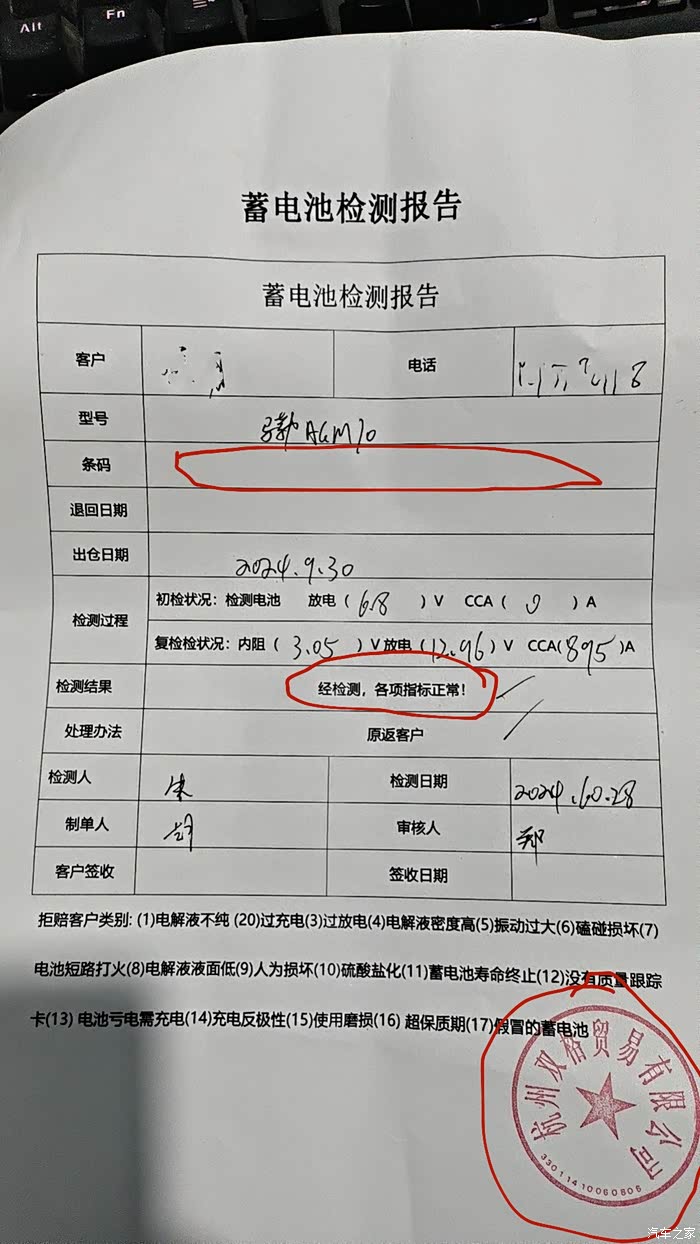 Alt
Fn
蓄电池检测报告
蓄电池检测报告
客户 电话
型号 AGM70
条码
退回日期
出仓日期 2024.9.30
检测过程 初检状况：检测电池 放电（6.8）V CCA（0）A
复检检状况：内阻（3.05）V放电（12.96）V CCA(895)A
检测结果 经检测，各项指标正常！
处理办法 原返客户
检测人 朱 检测日期 2024.10.28
制单人 胡 审核人 郑
客户签收 签收日期
拒赔客户类别: (1)电解液不纯 (20)过充电(3)过放电(4)电解液密度高(5)振动过大(6)磕碰损坏(7)
电池短路打火(8)电解液液面低(9)人为损坏(10)硫酸盐化(11)蓄电池寿命终止(12)没有质量跟踪
卡(13) 电池亏电需充电(14)充电反极性(15)使用磨损(16) 超保质期(17)假冒的蓄电池
杭州双格贸易有限公司
33011410060806
汽车之家